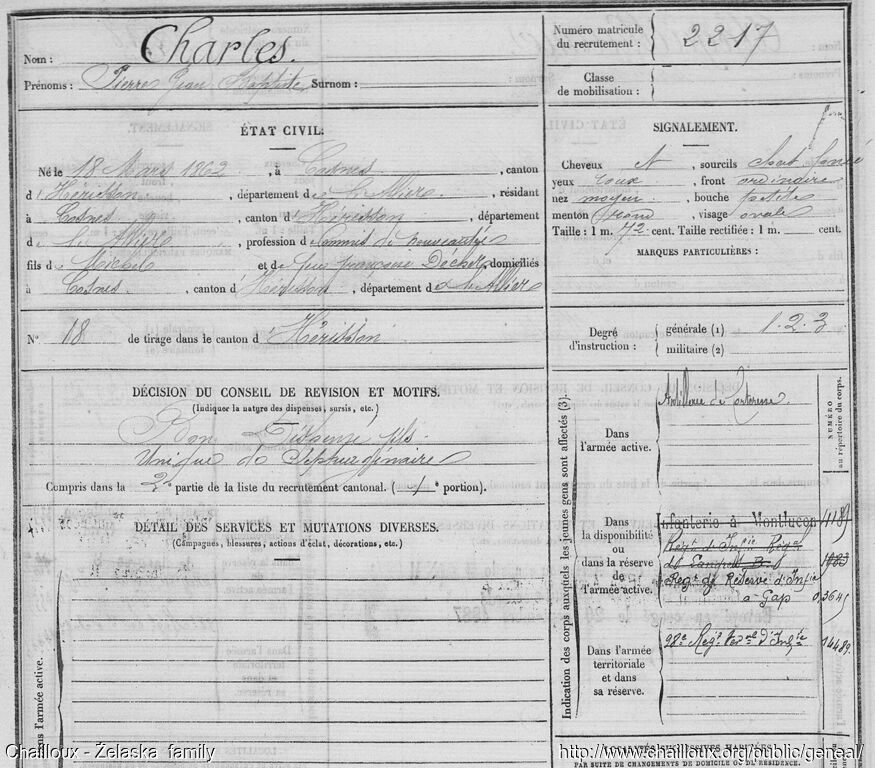 Nom : Charles.
Prénoms : Pierre Jean Baptiste Surnom :
Numéro matricule du recrutement : 2217
Classe de mobilisation :
ÉTAT CIVIL.
Né le 18 Mars 1862, à Cosnes, canton
d'Hérisson, département de l'Allier, résidant
à Cosnes, canton d'Hérisson, département
de l'Allier, profession de Commis de nouveautés
fils de Michel et de feue françoise domiciliés
à Cosnes, canton d'Hérisson, département de l'Allier
N° 18 de tirage dans le canton d'Hérisson
DÉCISION DU CONSEIL DE REVISION ET MOTIFS.
(Indiquer la nature des dispenses, sursis, etc.)
Bon Dispensé fils
unique de Septuagénaire
Compris dans la 2e partie de la liste du recrutement cantonal. ( e portion).
DÉTAIL DES SERVICES ET MUTATIONS DIVERSES.
(Campagnes, blessures, actions d'éclat, décorations, etc.)
Dans l'armée active.
SIGNALEMENT.
Cheveux et, sourcils
yeux roux, front ordinaire
nez moyen, bouche petite
menton rond, visage ovale
Taille : 1 m. 72 cent. Taille rectifiée : 1 m. cent.
MARQUES PARTICULIÈRES :
Degré d'instruction : générale (1) 1.2.3
militaire (2)
Indication des corps auxquels les jeunes gens sont affectés (3).
NUMÉRO au répertoire du corps.
Dans l'armée active. Artillerie de forteresse
Dans la disponibilité ou dans la réserve de l'armée active.
Infanterie à Montluçon 4189
Régt d'Infie Régal
Régt de Réserve d'Infie
à Gap 03645
Dans l'armée territoriale et dans sa réserve.
98e Régt Terral d'Infie 04489
LOCALITÉS SUCCESSIVES HABITÉES
PAR SUITE DE CHANGEMENTS DE DOMICILE OU DE RÉSIDENCE.
Chailloux - Żelaska family
http://www.chailloux.org/public/geneal/